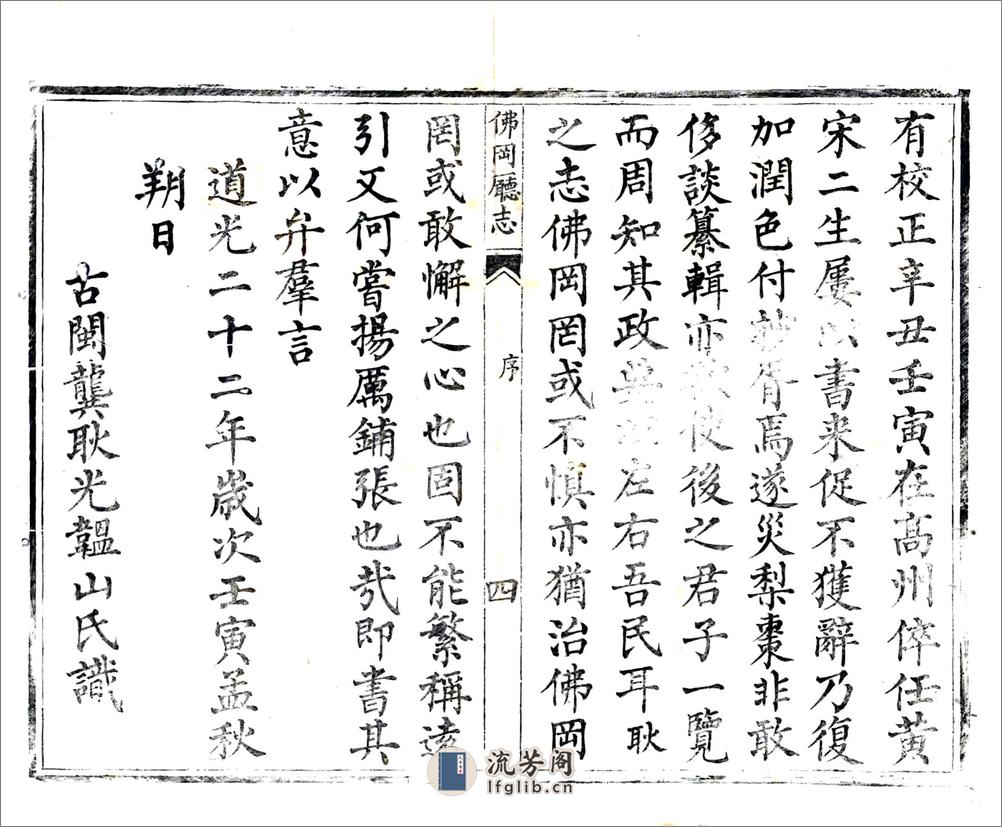 有校正辛丑壬寅在高州倅任黃
宋二生屢以書来促不獲辭乃復
加潤色付鈔胥焉遂災梨棗非敢
侈談纂輯亦欲使後之君子一覽
而周知其政典 左右吾民耳耿
之志佛岡罔或不慎亦猶治佛岡
佛岡廳志
序
四
罔或敢懈之心也固不能繁稱遠
引又何嘗揚厲鋪張也哉即書其
意以弁羣言
道光二十二年歲次壬寅孟秋
朔日
古閩龔耿光韞山氏識
流芳阁
lfglib.cn